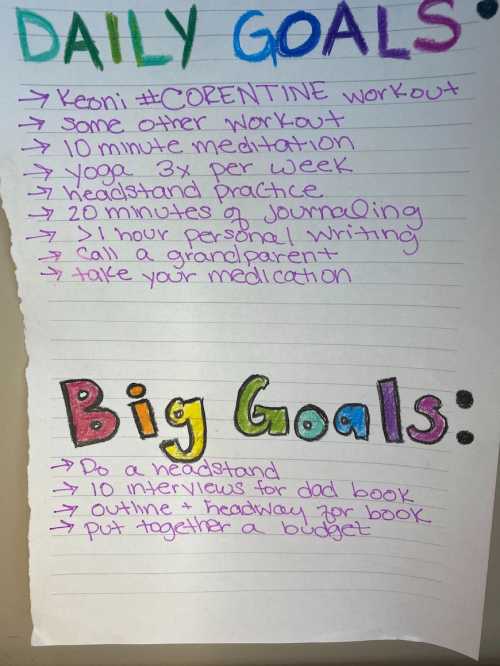 DAILY GOALS:
→ Keoni #CORENTINE workout
→ some other workout
→ 10 minute meditation
→ yoga 3x per week
→ headstand practice
→ 20 minutes of journaling
→ >1 hour personal writing
→ call a grandparent
→ take your medication
Big Goals:
→ Do a headstand
→ 10 interviews for dad book
→ outline + headway for book
→ put together a budget